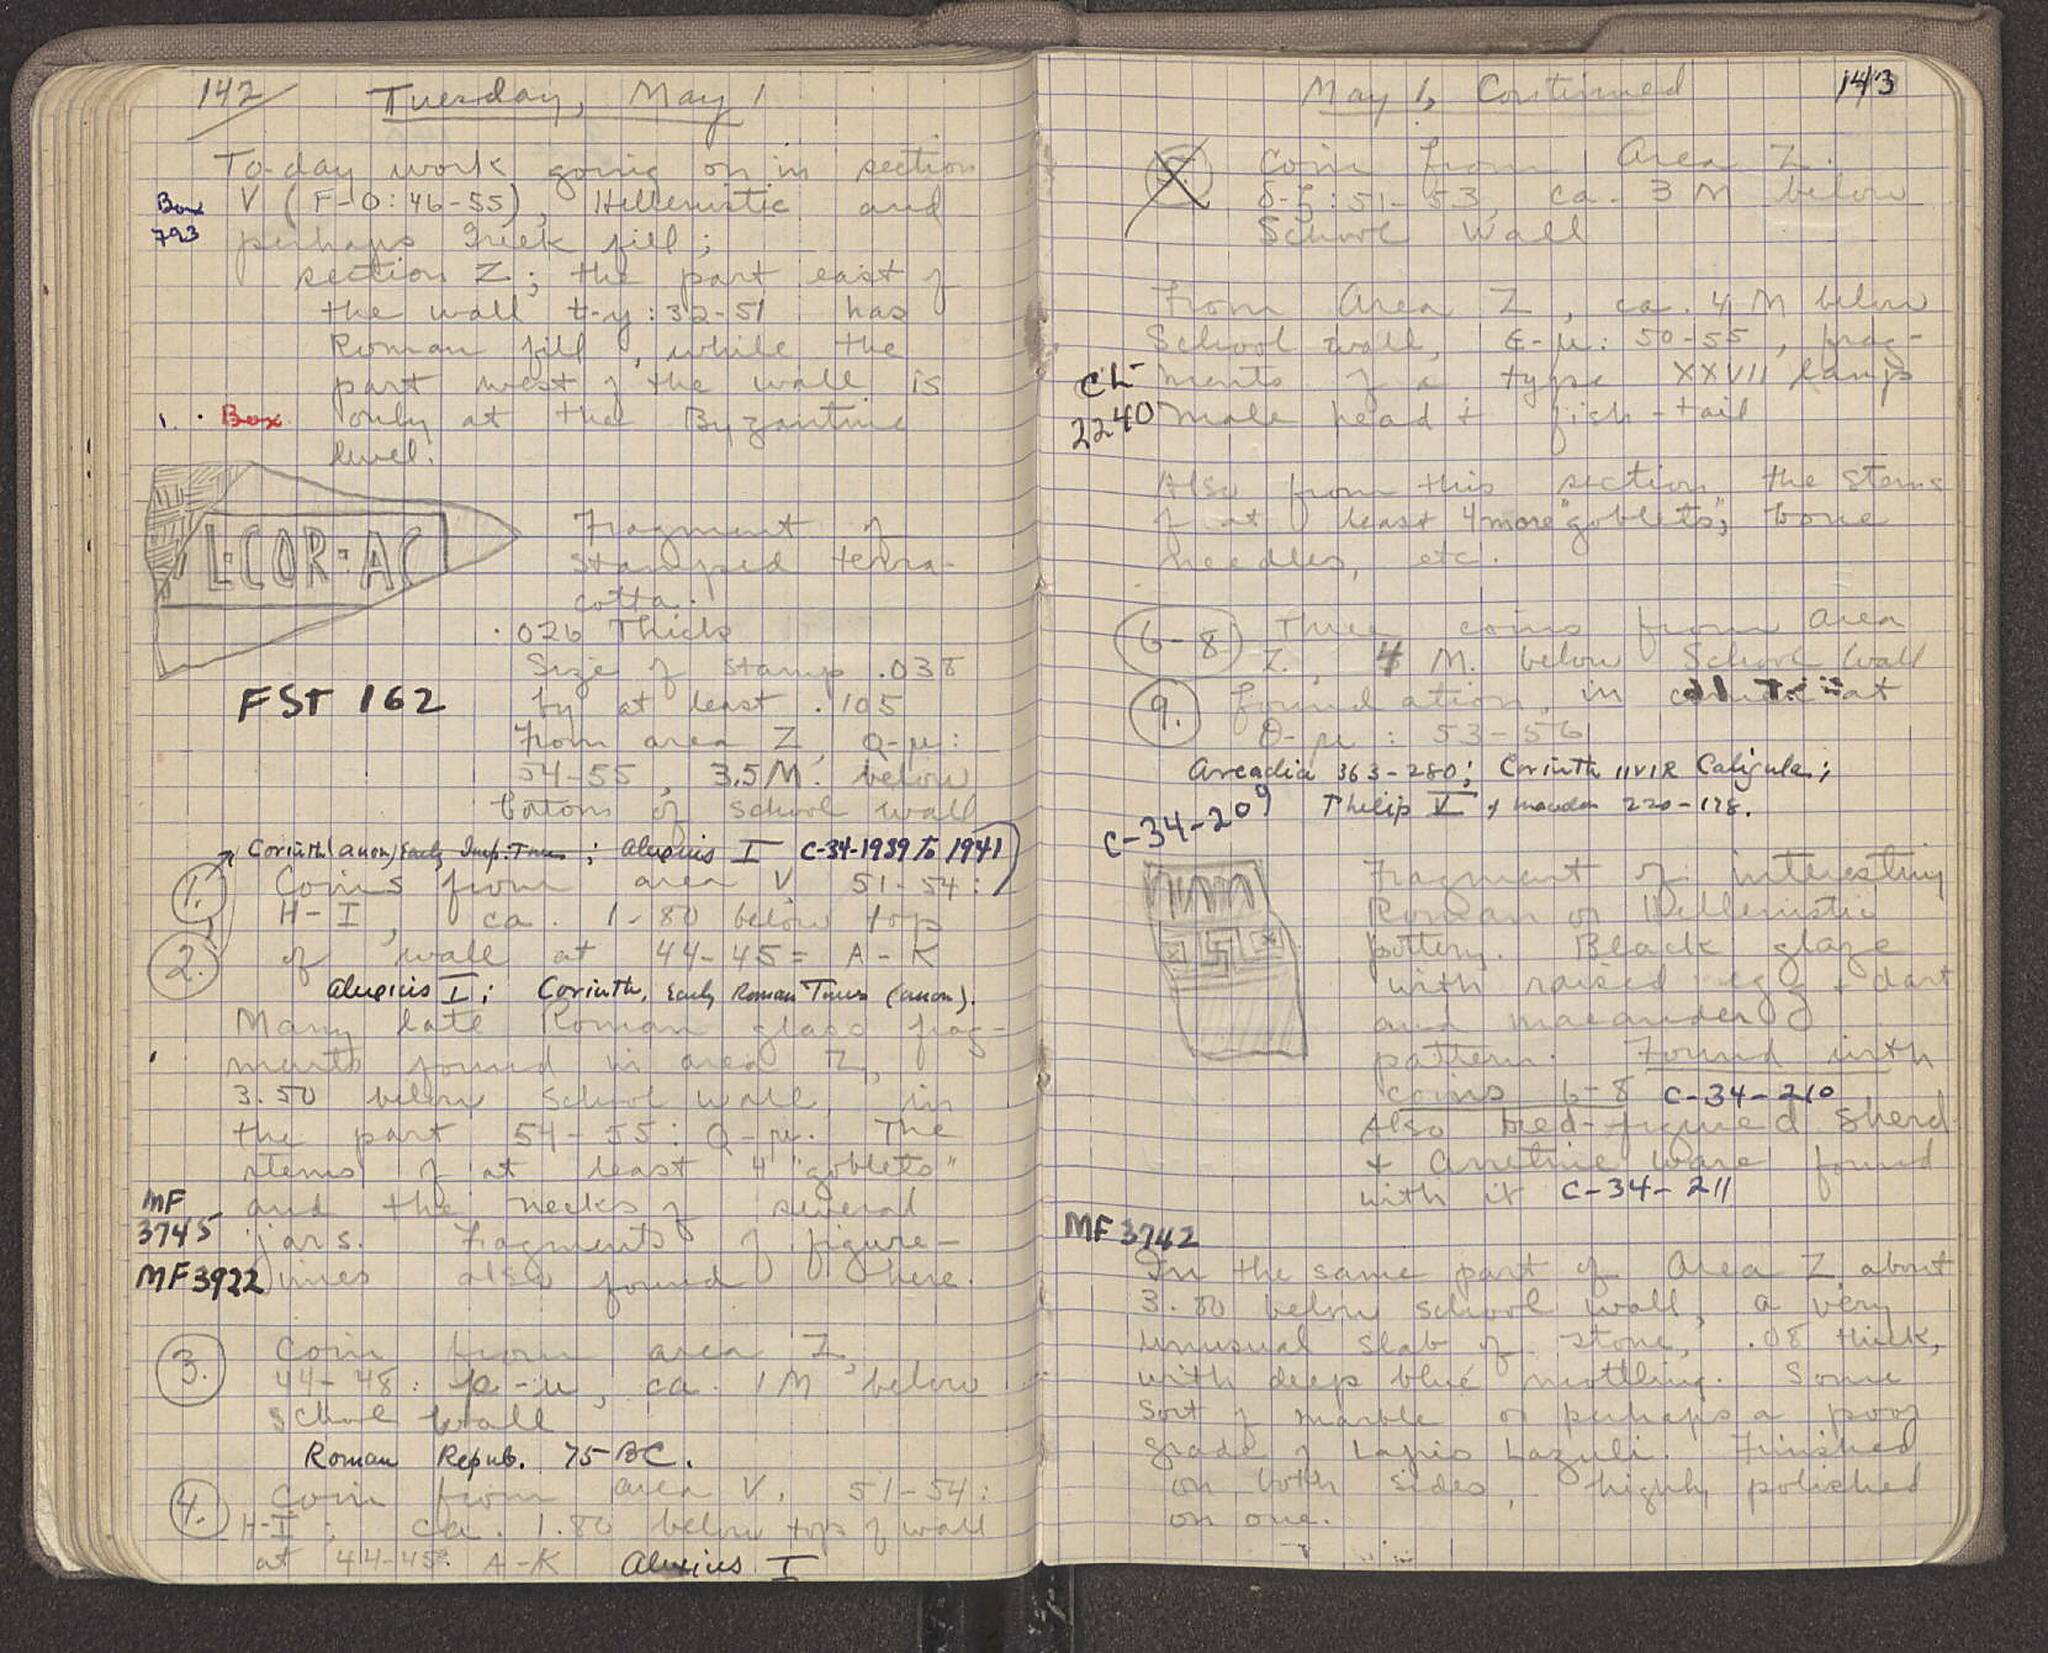 142
Tuesday, May 1
To-day work going on in section
Box V (F-O: 46-55), Hellenistic and
793 perhaps Greek fill;
section Z; the part east of
the wall t-y: 32-51 has
Roman fill, while the
part west of the wall is
1. Box only at the Byzantine
level.
L·COR·AC
Fragment of
stamped terra-
cotta.
.026 Thick
Size of stamp .038
FST 162
by at least .105
From area Z, Q-μ:
54-55, 3.5 M. below
bottom of school wall
Corinth (anon) Early Imp. Times; Alexius I C-34-1939 to 1941
1. Coins from area V 51-54:
H-I, ca. 1-80 below top
2. of wall at 44-45 = A-K
Alexius I; Corinth, Early Roman Times (anon).
Many late Roman glass frag-
ments found in area Z,
3.50 below School wall, in
the part 54-55: Q-μ. The
stems of at least 4 "goblets"
MF and the necks of several
3745 jars. Fragments of figure-
MF3922 ines also found here.
3. Coin from area Z,
44-48: -u, ca. 1 M below
school wall
Roman Repub. 75 BC.
4. Coin from area V. 51-54:
H-I; ca. 1.80 below top of wall
at 44-45: A-K Alexius I
May 1, Continued
143
Coin from Area Z.
δ-ζ: 51-53, ca. 3 M below
School Wall
From Area Z, ca. 4 M below
School wall, ε-μ: 50-55, frag-
CL- ments of a type XXVII lamp
2240 male head + fish-tail
Also from this section the stems
of at least 4 more "goblets", bone
needles, etc.
6-8 Three coins from area
Z., 4 M. below School Wall
9. foundation, in at
θ-μ: 53-56
Arcadia 363-280; Corinth IIVIR Caligula;
Philip V of Macedon 220-178.
C-34-209
Fragment of interesting
Roman or Hellenistic
pottery. Black glaze
with raised egg + dart
and maeander
pattern. Found with
coins 6-8 C-34-210
Also red-figured sherd
+ Arretine ware found
with it C-34-211
MF 3742
In the same part of Area Z, about
3.80 below school wall, a very
unusual slab of stone, .08 thick,
with deep blue mottling. Some
sort of marble or perhaps a poor
grade of Lapis Lazuli. Finished
on both sides, highly polished
on one.